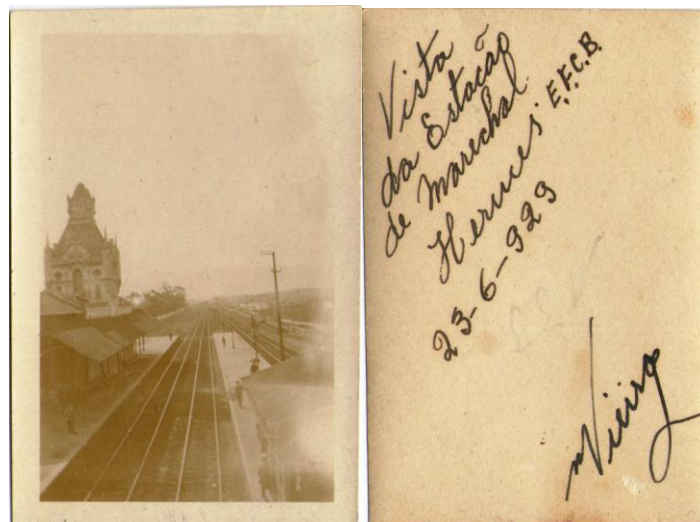 Vista
da Estação
de Marechal
Hermes E.F.C.B.
23-6-929
Vieira